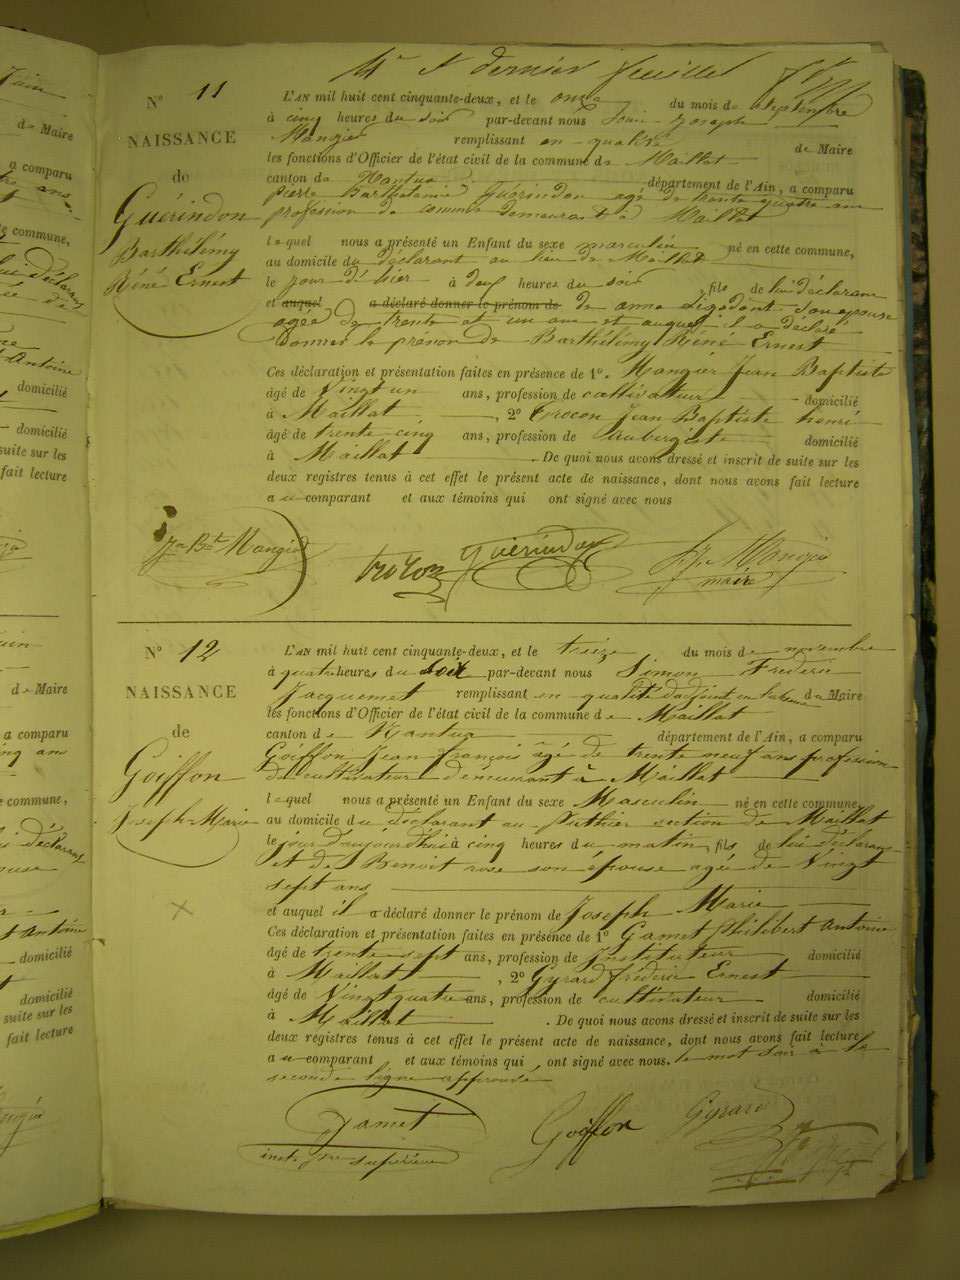 4e et dernier feuillet
N° 11
NAISSANCE
de
Guérindon
Barthélémy
Réné Ernest
L'AN mil huit cent cinquante-deux, et le onze du mois de septembre
à cinq heures du soir par-devant nous Joseph
Mangier remplissant en qualité de Maire
les fonctions d'Officier de l'état civil de la commune de Maillat
canton de Nantua département de l'Ain, a comparu
Barthélémie Guérindon agé de trente quatre ans
profession de commis demeurant à Maillat
lequel nous a présenté un Enfant du sexe masculin né en cette commune,
au domicile du déclarant au lieu de Maillat
le jour d'hier à deux heures du soir fils de lui déclarant
et auquel a déclaré donner le prénom de de anne Sigodent son épouse
agée de trente et un ans et auquel il a déclaré
donner le prénom de Barthélémy Réné Ernest
Ces déclaration et présentation faites en présence de 1°. Mangier Jean Baptiste
âgé de Vingt un ans, profession de cultivateur domicilié
à Maillat, 2° Jean Baptiste henri
âgé de trente cinq ans, profession de aubergiste domicilié
à Maillat. De quoi nous avons dressé et inscrit de suite sur les
deux registres tenus à cet effet le présent acte de naissance, dont nous avons fait lecture
au comparant et aux témoins qui ont signé avec nous
Jn Bte Mangier
Guérindon
Mangier
maire
N° 12
NAISSANCE
de
Goiffon
Joseph-Marie
L'AN mil huit cent cinquante-deux, et le treize du mois de novembre
à quatre heures du soir par-devant nous Simon Frédéric
Jacquemet remplissant en qualité d'adjoint de Maire
les fonctions d'Officier de l'état civil de la commune de Maillat
canton de Nantua département de l'Ain, a comparu
Goiffon Jean françois âgé de trente neuf ans profession
de cultivateur demeurant à Maillat
lequel nous a présenté un Enfant du sexe Masculin né en cette commune
au domicile du déclarant au section de Maillat
le jour d'aujourd'hui à cinq heures du matin, fils de lui déclarant
et de Benoit rose son épouse agée de Vingt
sept ans
et auquel il a déclaré donner le prénom de Joseph Marie
Ces déclaration et présentation faites en présence de 1° Gamet Philibert Antoine
âgé de trente sept ans, profession de Instituteur domicilié
à Maillat, 2° Gyrard frédéric Ernest
âgé de Vingt quatre ans, profession de cultivateur domicilié
à Maillat. De quoi nous avons dressé et inscrit de suite sur les
deux registres tenus à cet effet le présent acte de naissance, dont nous avons fait lecture
au comparant et aux témoins qui ont signé avec nous. le mot soir à la
seconde ligne approuvé
Gamet
supérieur
Goiffon
Gyrard